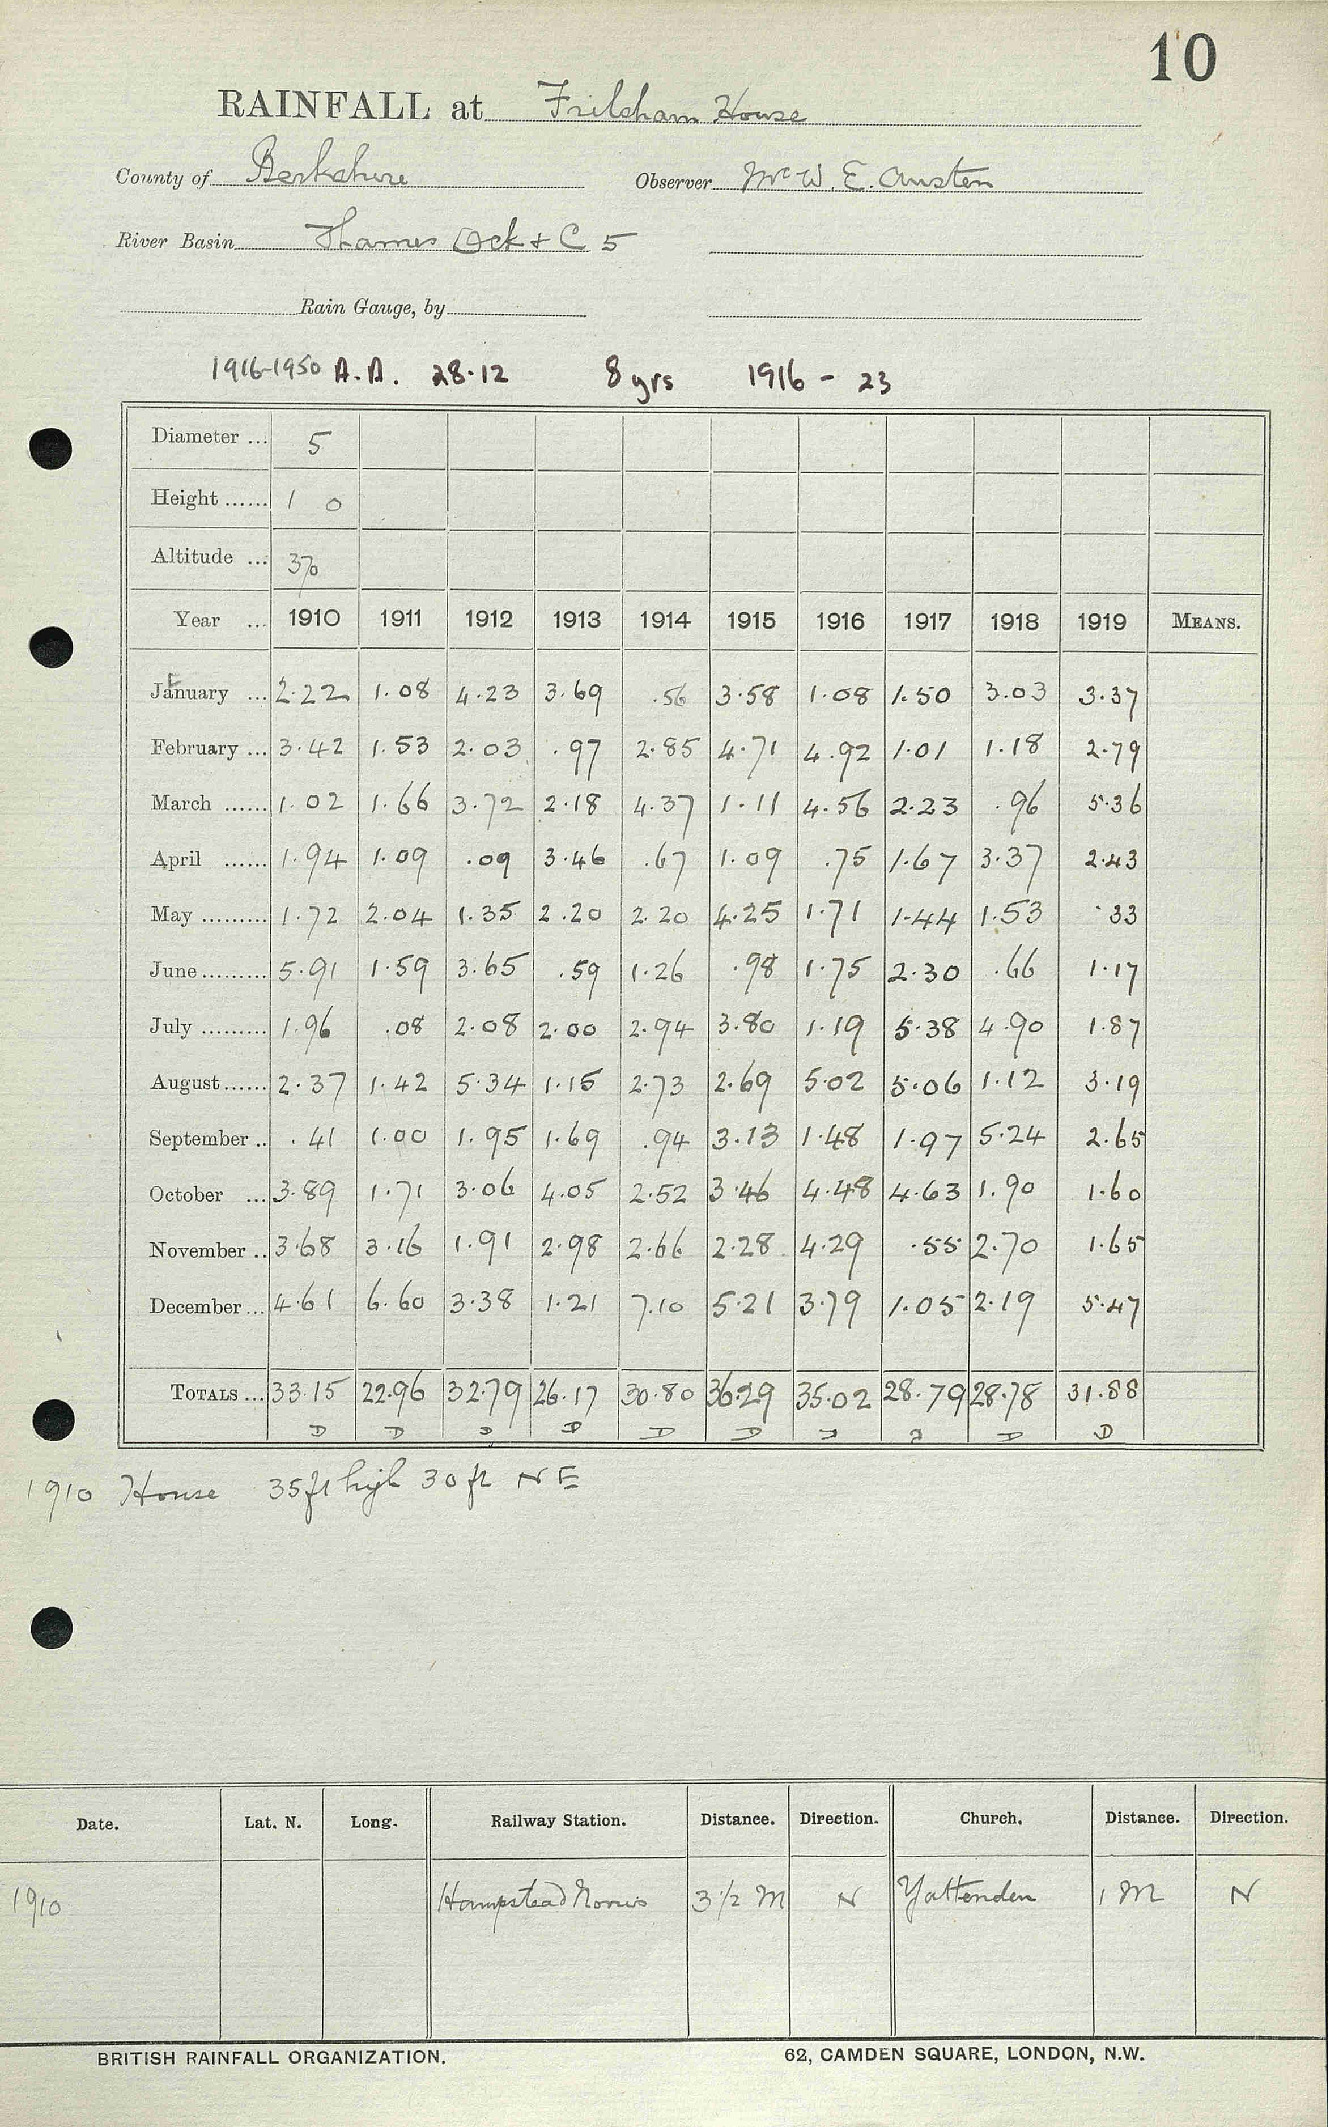 10
RAINFALL at Frilsham House
County of Berkshire Observer Mr W. E. Austen
River Basin Thames Ock & C 5
Rain Gauge, by
1916-1950 A.A. 28.12 8 yrs 1916 - 23
Diameter ... 5
Height ...... 1 0
Altitude ... 370
Year ... 1910 1911 1912 1913 1914 1915 1916 1917 1918 1919 MEANS.
January ... 2.22 1.08 4.23 3.69 .56 3.58 1.08 1.50 3.03 3.37
February ... 3.42 1.53 2.03 .97 2.85 4.71 4.92 1.01 1.18 2.79
March ...... 1.02 1.66 3.72 2.18 4.37 1.11 4.56 2.23 .96 5.36
April ...... 1.94 1.09 .09 3.46 .67 1.09 .75 1.67 3.37 2.43
May ......... 1.72 2.04 1.35 2.20 2.20 4.25 1.71 1.44 1.53 .33
June ......... 5.91 1.59 3.65 .59 1.26 .98 1.75 2.30 .66 1.17
July ......... 1.96 .08 2.08 2.00 2.94 3.80 1.19 5.38 4.90 1.87
August ...... 2.37 1.42 5.34 1.15 2.73 2.69 5.02 5.06 1.12 3.19
September .. .41 1.00 1.95 1.69 .94 3.13 1.48 1.97 5.24 2.65
October ... 3.89 1.71 3.06 4.05 2.52 3.46 4.48 4.63 1.90 1.60
November .. 3.68 3.16 1.91 2.98 2.66 2.28 4.29 .55 2.70 1.65
December ... 4.61 6.60 3.38 1.21 7.10 5.21 3.79 1.05 2.19 5.47
TOTALS ... 33.15 22.96 32.79 26.17 30.80 36.29 35.02 28.79 28.78 31.88
D D D D D D D D
1910 House 35 ft high 30 ft NE
Date. Lat. N. Long. Railway Station. Distance. Direction. Church. Distance. Direction.
1910 Hampstead Norris 3 1/2 M N Yattenden 1 M N
BRITISH RAINFALL ORGANIZATION. 62, CAMDEN SQUARE, LONDON, N.W.